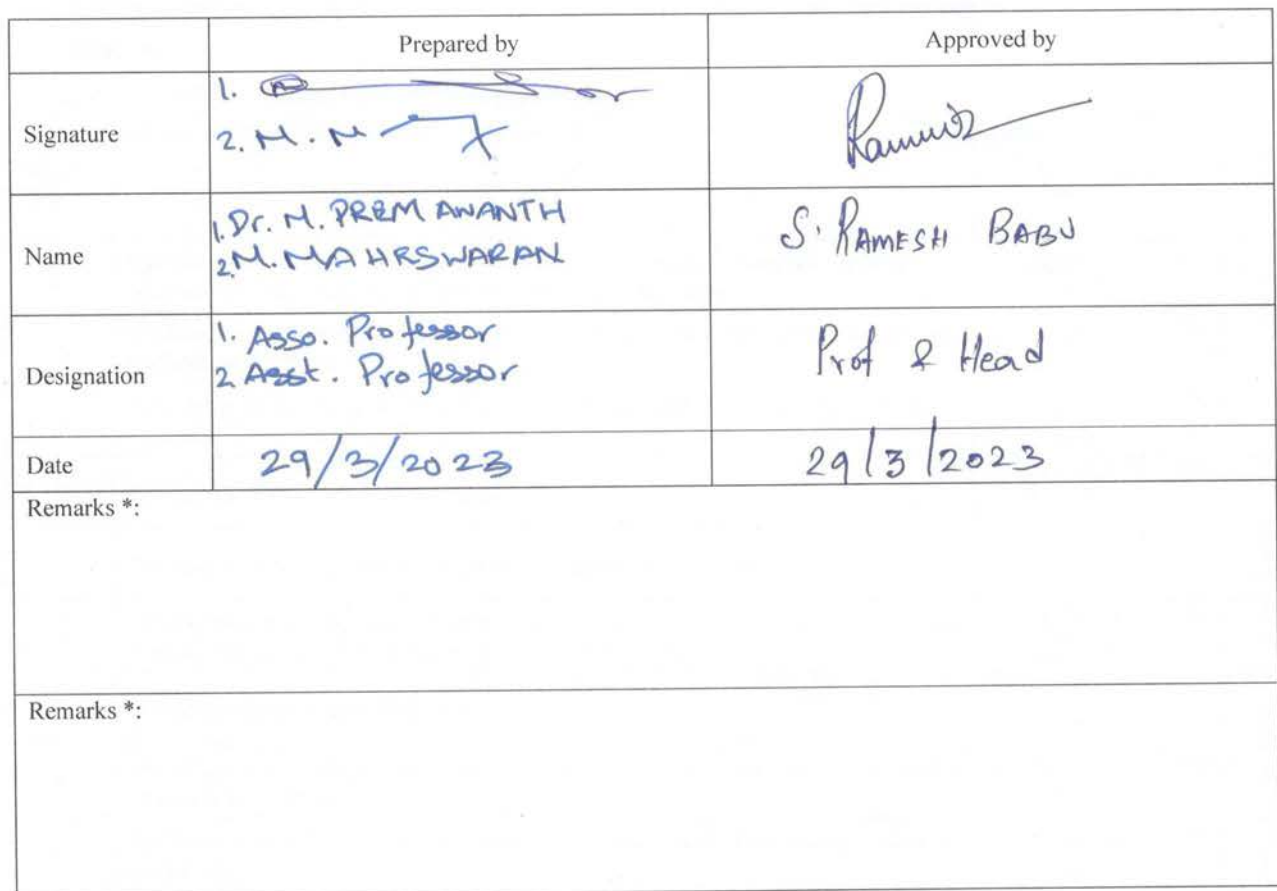 Prepared by Approved by
Signature
1.
2. M. M
Name
1. Dr. M. PREM ANANTH
2. M. MAHESWARAN
S. RAMESH BABU
Designation
1. Asso. Professor
2 Asst. Professor
Prof & Head
Date 29/3/2023 29/3/2023
Remarks *:
Remarks *: